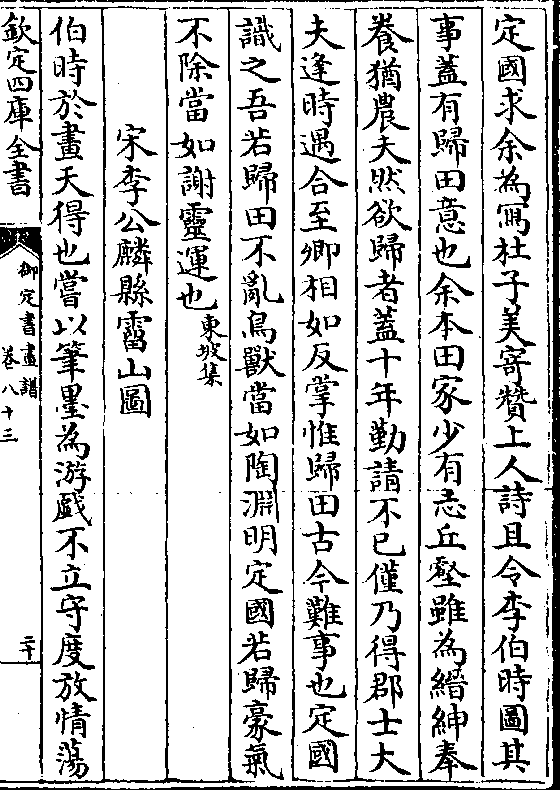 定國求余為寫杜子美寄贊上人詩且令李伯時圖其
事蓋有歸田意也余本田家少有志丘壑雖為縉紳奉
養猶農夫然欲歸者蓋十年勤請不已僅乃得郡士大
夫逢時遇合至卿相如反掌惟歸田古今難事也定國
識之吾若歸田不亂鳥獸當如陶淵明定國若歸豪氣
不除當如謝靈運也東坡集
宋李公麟縣霤山圖
伯時於畫天得也嘗以筆墨為游戲不立守度放情蕩
欽定四庫全書
御定書畫譜
卷八十三
二十